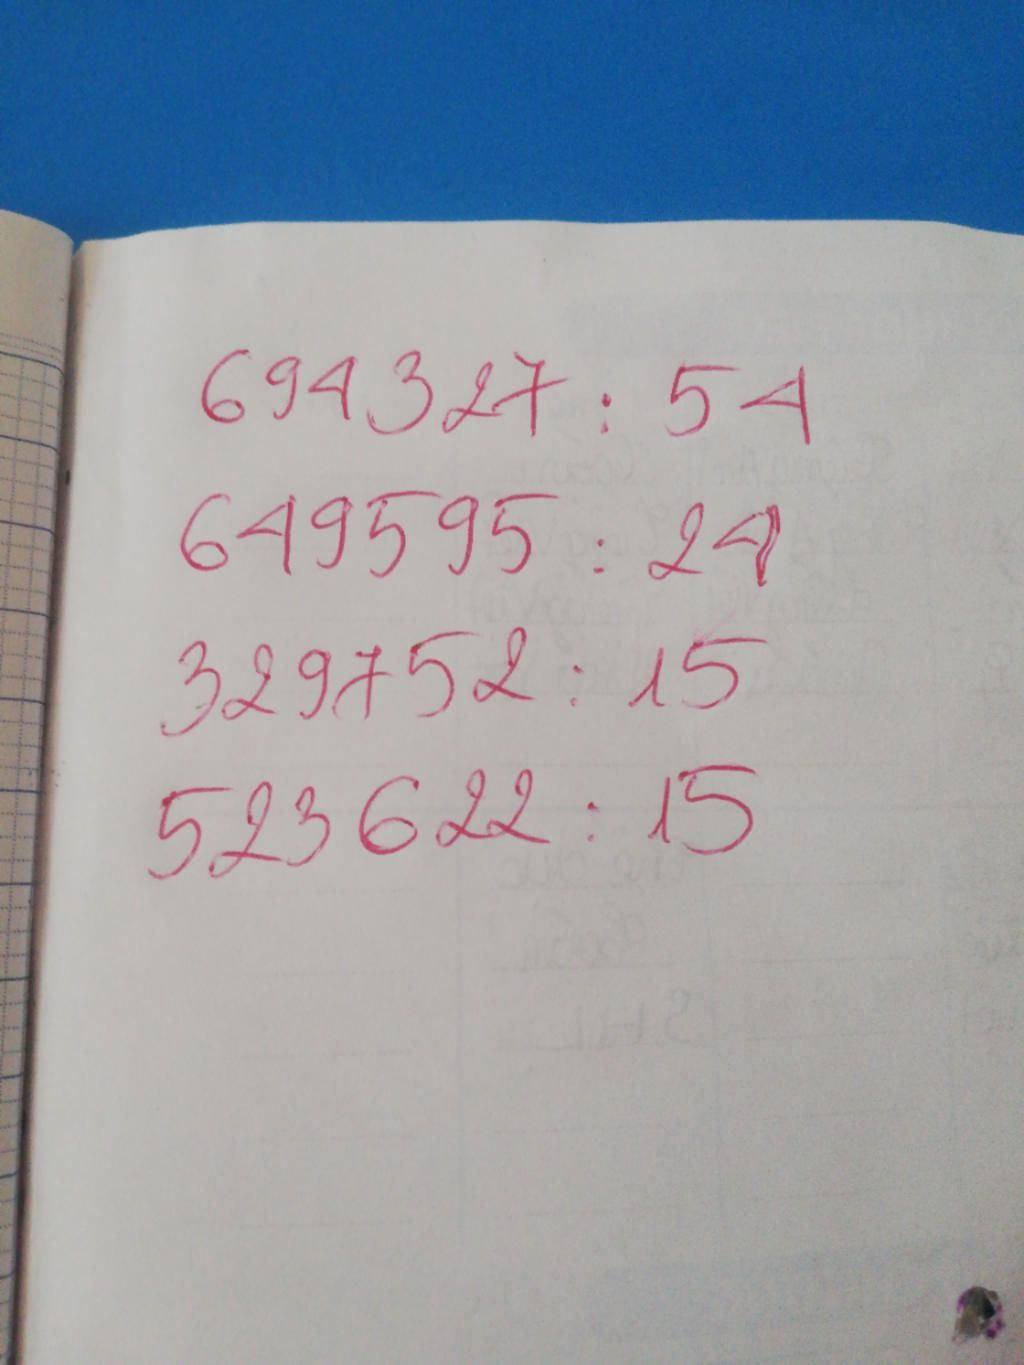 694327 : 54
649595 : 24
329752 : 15
523622 : 15